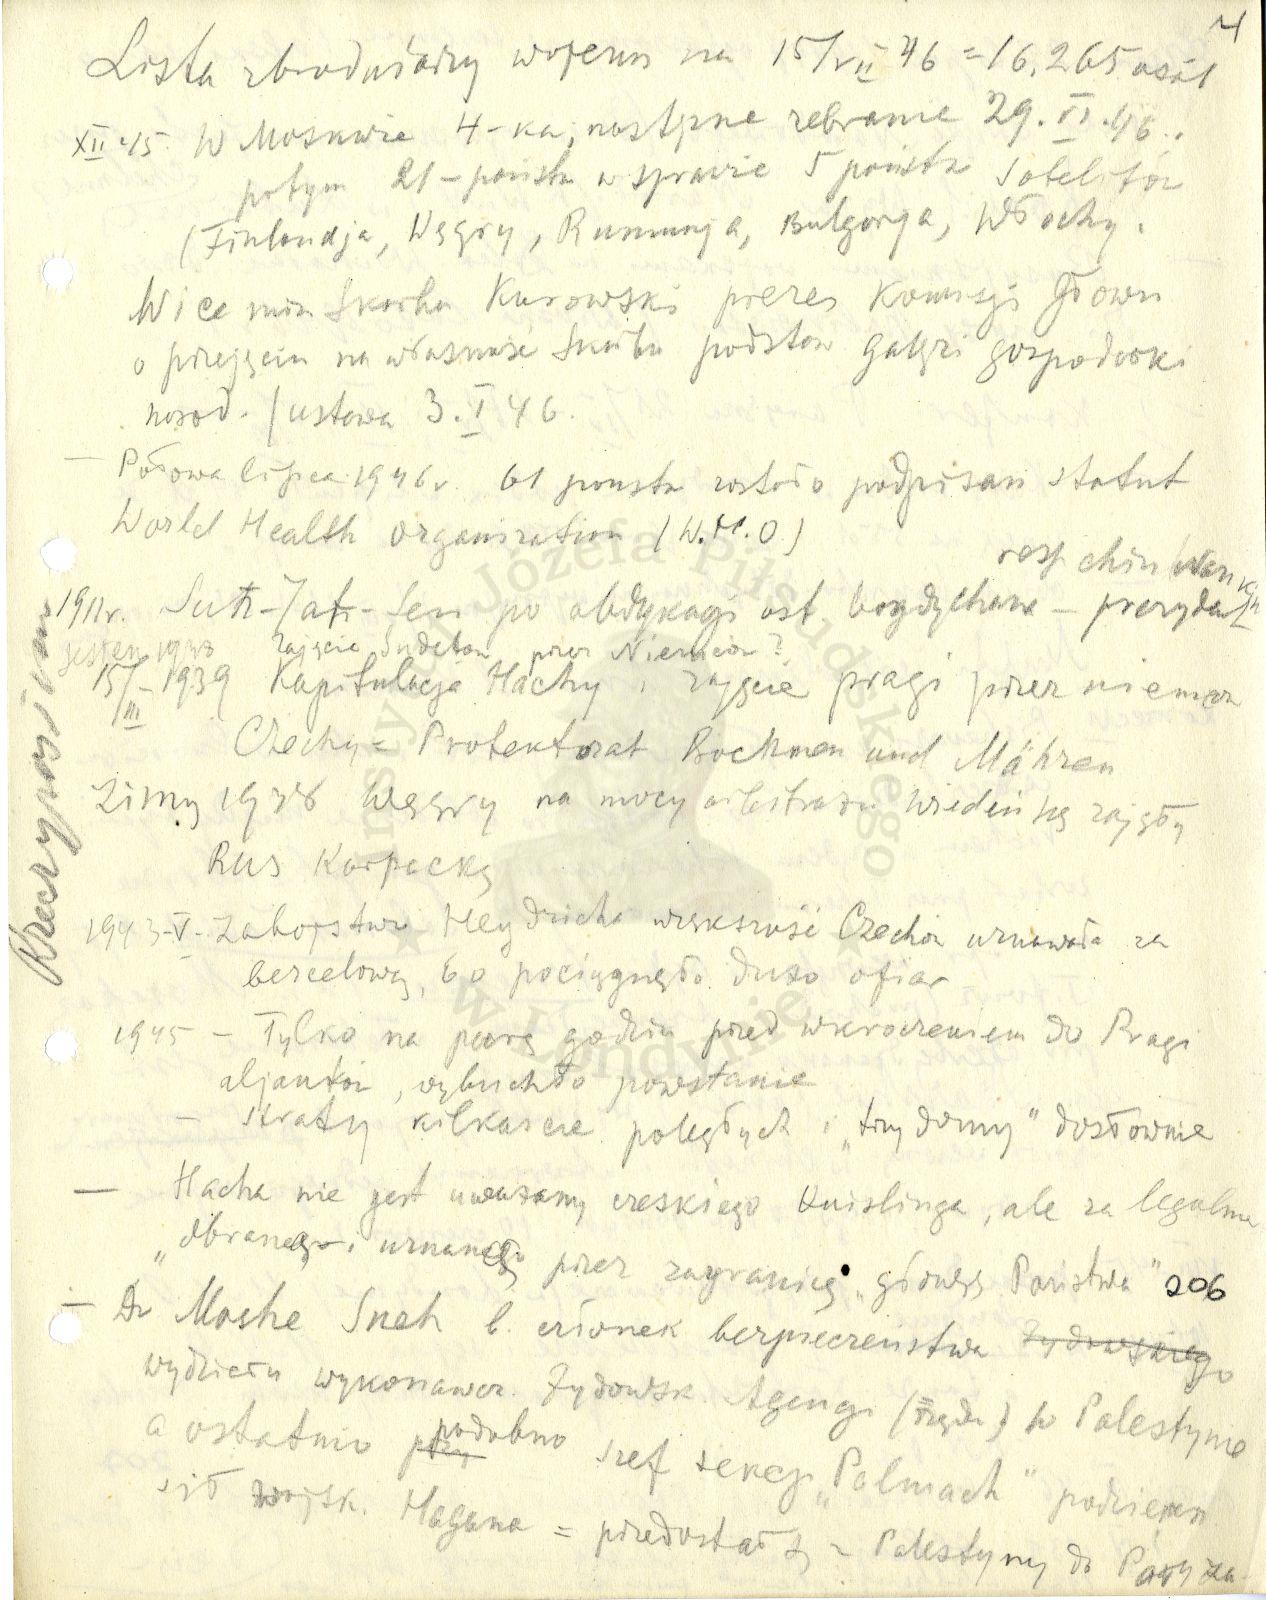 4
Lista zbrodniarzy wojenn na 15/VII 46 = 16.265 osób
XII 45 W Moskwie 4-ka, następne zebranie 29.VI.46.
potym 21-państw w sprawie 5 państw satelitów
(Finlandja, Węgry, Rumunja, Bulgarja, Włochy.
Wice min Skarbu Kurowski prezes Komisji Główn
o przejęciu na własność Skarbu podstaw gałęzi gospodarki
narod. /ustawa 3.I 46.
— Połowa lipca 1946 r. 61 państw zostało podpisan statut
World Health Organisation (W.H.O)
resp chin
1911 r. Sun-Jat-Sen po abdykacji ost. bogdychana — prezydent
jesień 1938 zajęcie Sudetów przez Niemców?
15/III-1939 Kapitulacja Hachy i zajęcie pragi przez niemców
Czechy = Protektorat Boehmen und Mähren
Zimą 1938 Węgry na mocy arbitrażu wiedeńsk zajęły
Ruś Karpacką
1943-V- Zabójstwo Heydricha większość Czechów uznawała za
bezcelową, bo pociągnęło dużo ofiar
1945 — Tylko na parę godzin przed wkroczeniem do Pragi
aljantów, wybuchło powstanie
— straty kilkaset poległych i „trzy domy" dosłownie
— Hacha nie jest uważany czeskiego Kwislinga, ale za legalnie
„obranego i uznanego przez zagranicę „głowę Państwa" 206
— Dr Moshe Sneh b. członek bezpieczeństwa żydowskiego
wydziału wykonawcz. Żydowsk. Agencji (=rządu) w Palestynie
a ostatnio przy podobno szef sekcji „Palmach" podziemn
sił wojsk. Hagana = przedostał się z Palestyny do Paryża
Rzeczypospolitej
Instytut Józefa Piłsudskiego
w Londynie